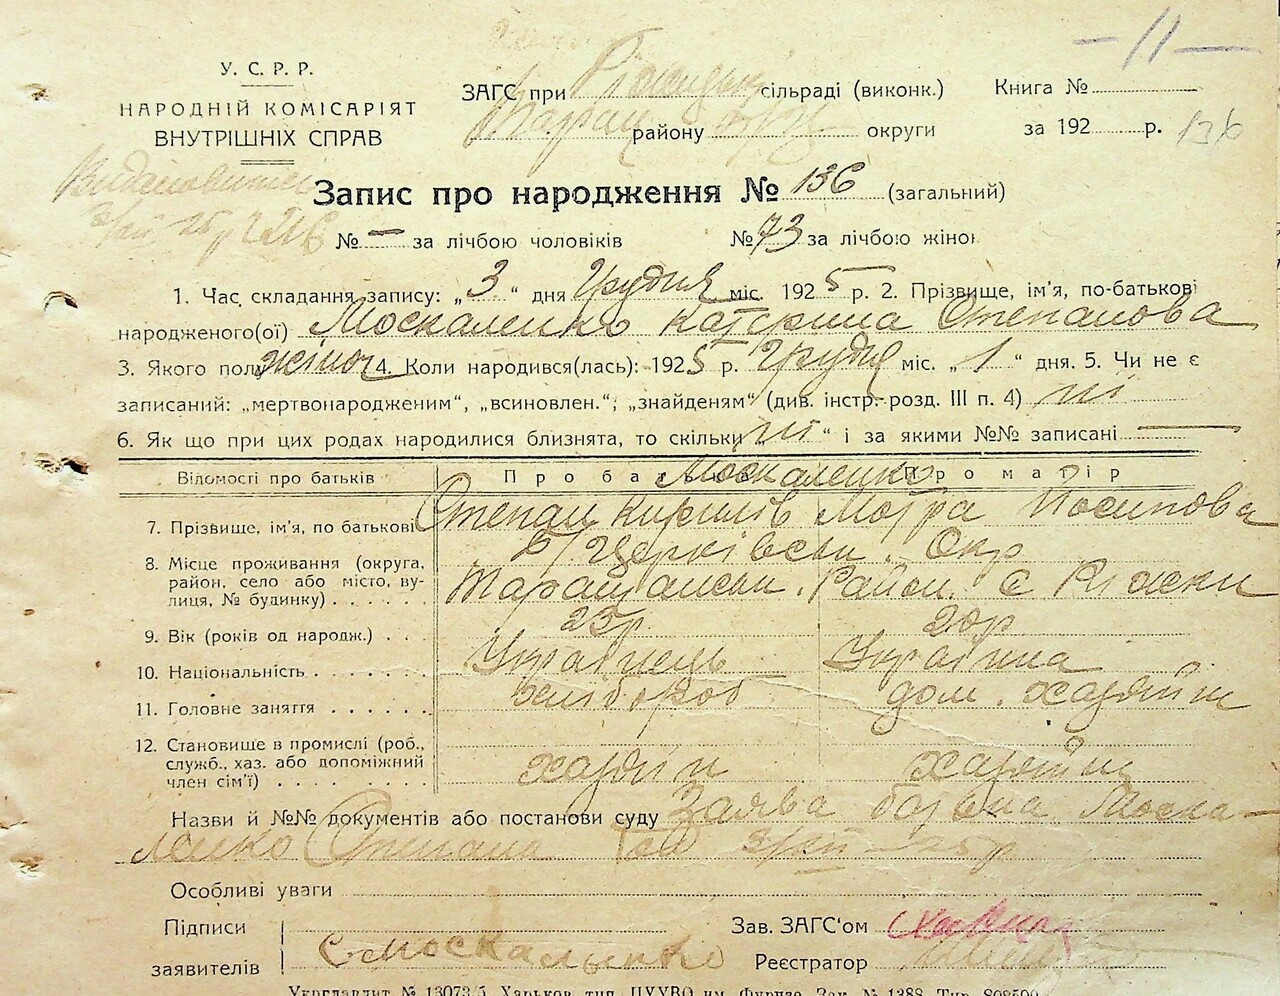 — 11 —
У. С. Р. Р.
НАРОДНІЙ КОМІСАРІЯТ
ВНУТРІШНІХ СПРАВ
ЗАГС при сільраді (виконк.)
району округи
Книга №
за 192 р. 136
Запис про народження № 136 (загальний)
№ — за лічбою чоловіків № 73 за лічбою жінок
1. Час складання запису: „3“ дня Грудня міс. 1925 р. 2. Прізвище, ім’я, по-батькові
народженого(ої) Москаленко Катерина Степанова
3. Якого полу жіноч 4. Коли народився(лась): 1925 р. Грудня міс. „1“ дня. 5. Чи не є
записаний: „мертвонародженим“, „всиновлен.“, „знайденям“ (див. інстр. розд. III п. 4) ні
6. Як що при цих родах народилися близнята, то скільки ні “ і за якими №№ записані —
Відомості про батьків Про батька Москаленко Про матір
7. Прізвище, ім’я, по батькові Степан Кирилів Мотра Йосипова
8. Місце проживання (округа, район, село або місто, вулиця, № будинку) Б/Церківськ. Окр
Таращанськ. Район. с
9. Вік (років од народж.) 25р. 20р
10. Національність Українець Українка
11. Головне заняття хлібороб дом. хазяйн
12. Становище в промислі (роб., служб., хаз. або допоміжний член сім’ї) хазяїн хазяйн
Назви й №№ документів або постанови суду Заява батька Моска-
ленко Степана
Особливі уваги
Підписи
заявителів С Москаленко
Зав. ЗАГС’ом
Реєстратор
Укрглавліт № 13073/5. Харьков тип. ЦУУВО им. Фрунзе. Зак. № 1388. Тир. 808500